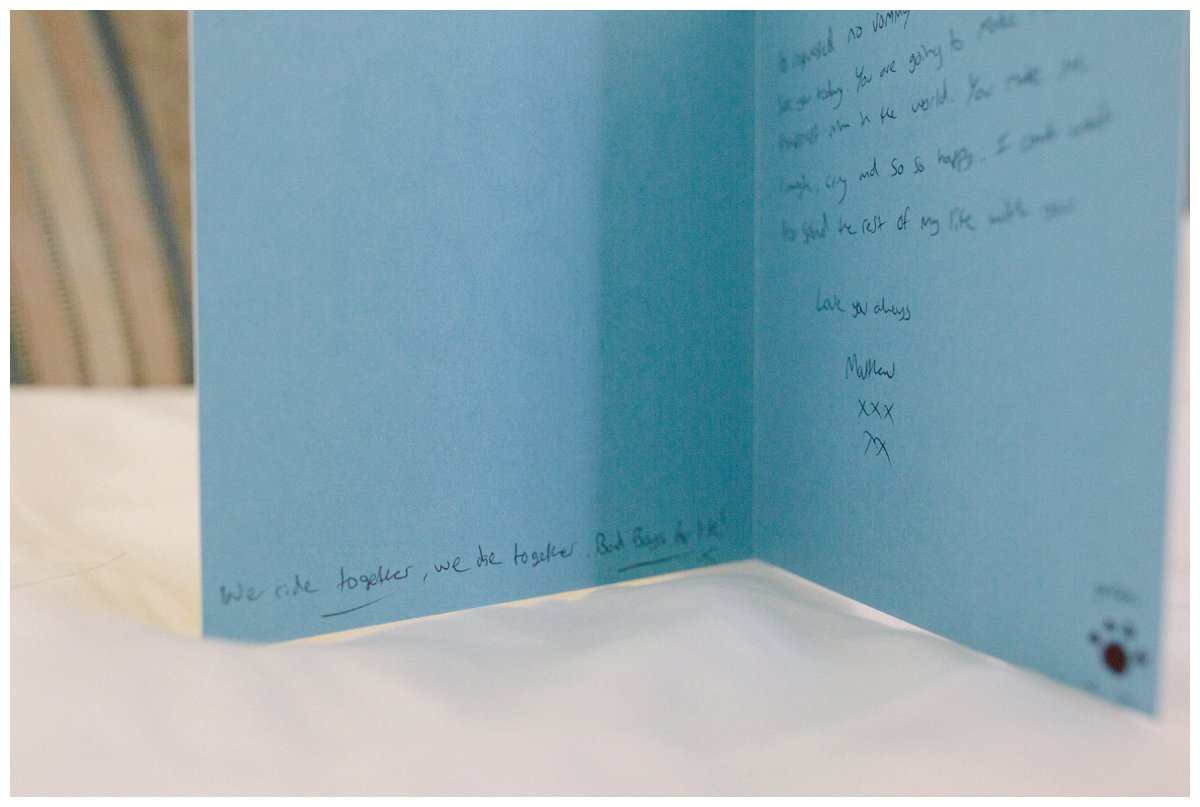 We ride together, we die together. Bad Boys for life!
no vommy
today. You are going to make
man in the world. You make me
laugh, cry and so so happy. I can't wait
to spend the rest of my life with you
Love you always
Matthew
xxx
xx